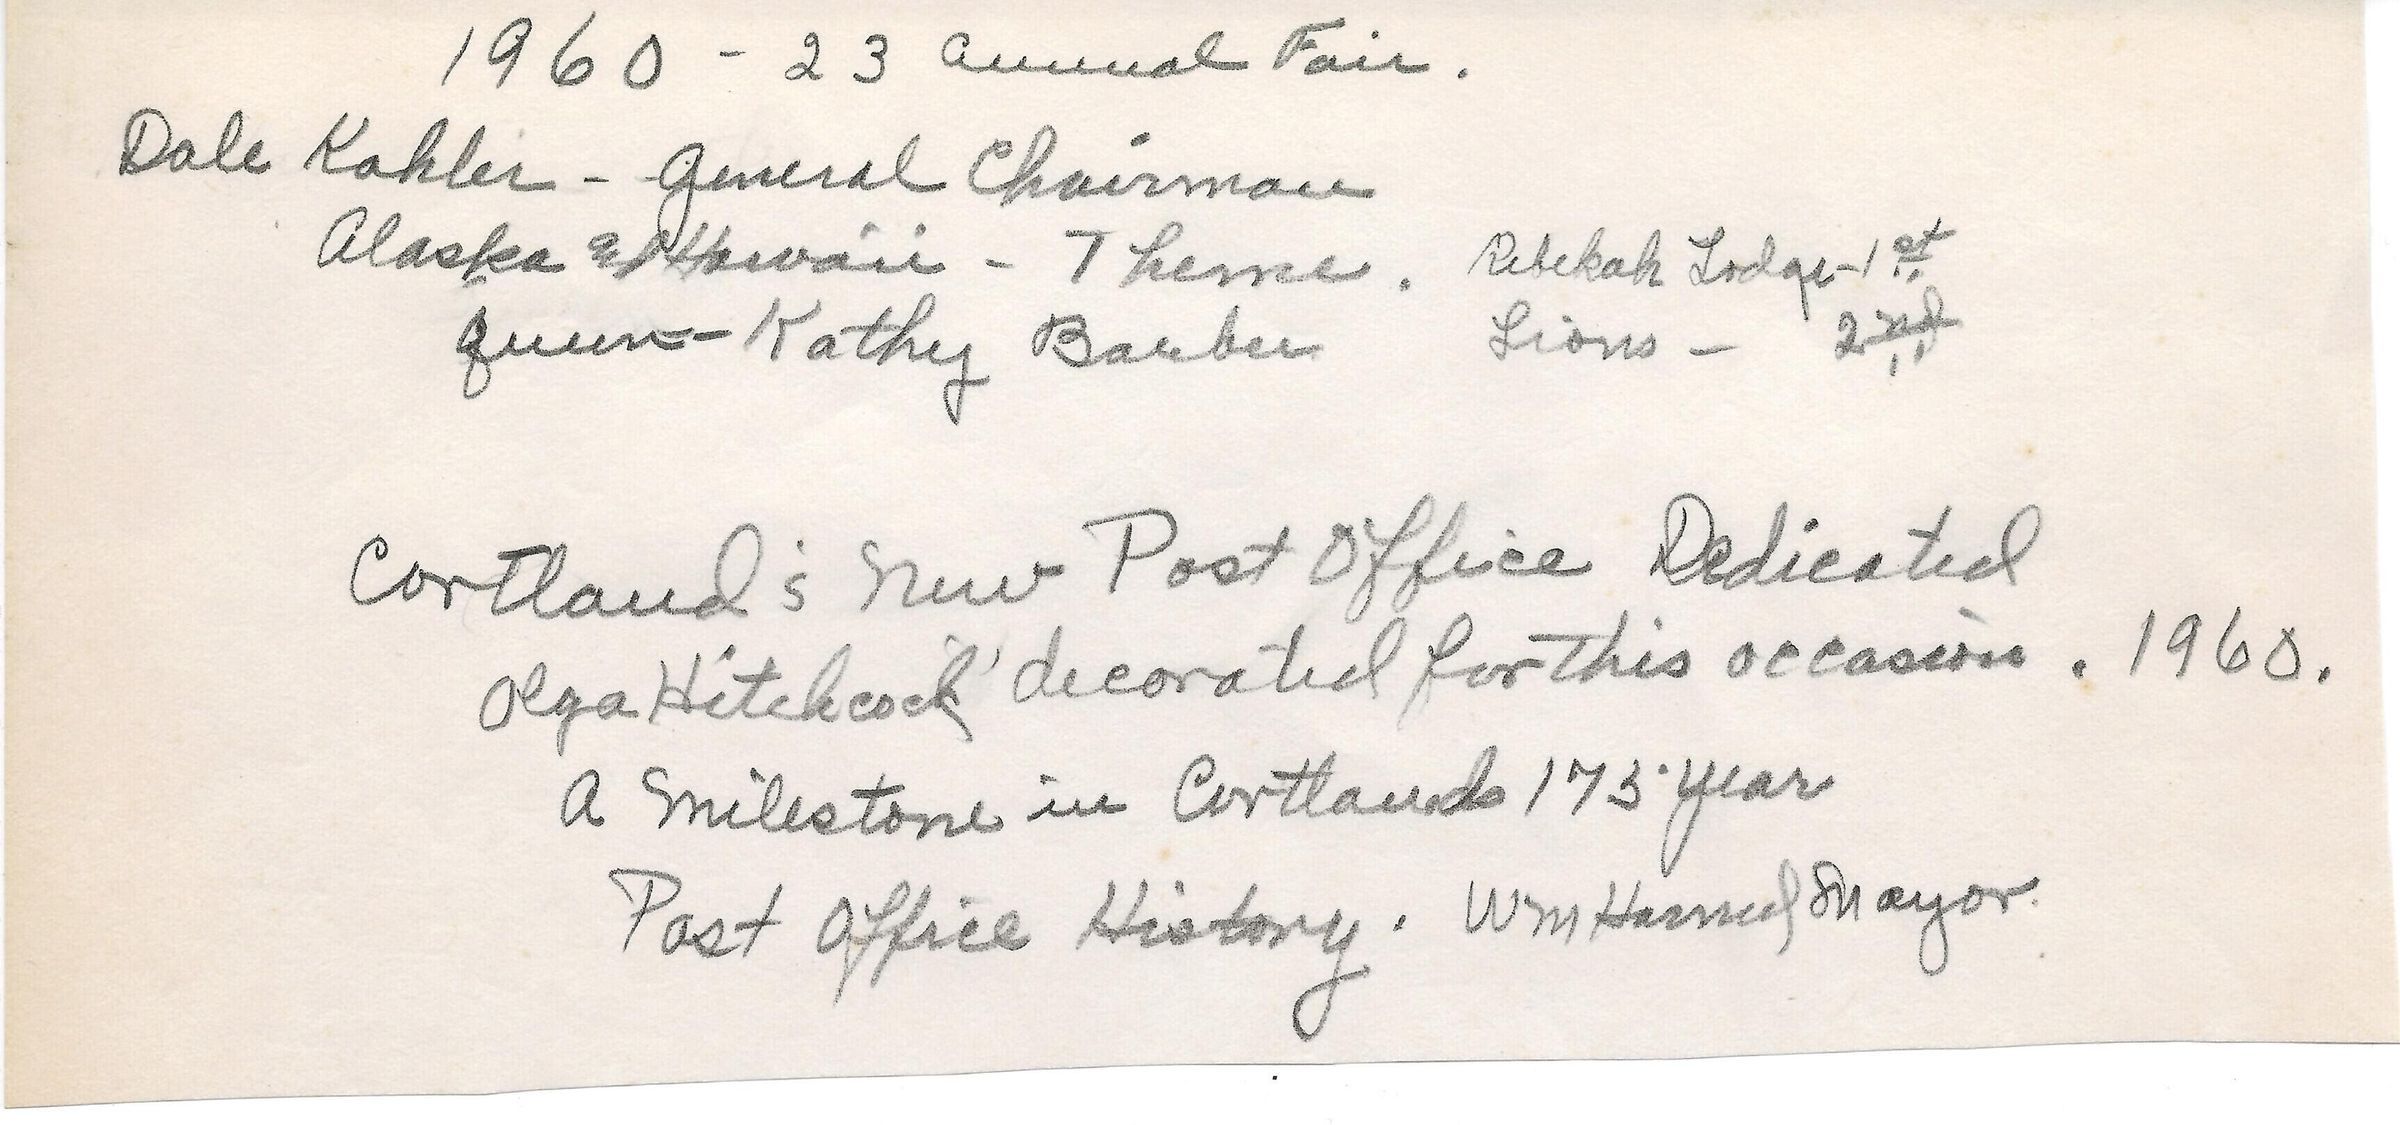 1960 - 23 annual Fair.
Dale Kahler - General Chairman
Alaska & Hawaii - Theme. Rebekah Lodge - 1st
Queen - Kathy Barber Lions - 2nd
Cortland's New Post Office Dedicated
Olga Hitchcock decorated for this occasion. 1960.
A Milestone in Cortlands 173 year
Post Office History. Wm Harned Mayor.